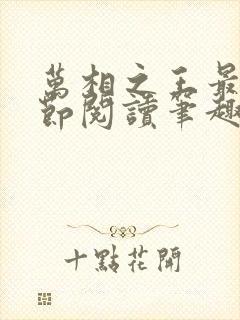 萬相之王最
節閱讀筆趣
十點花開